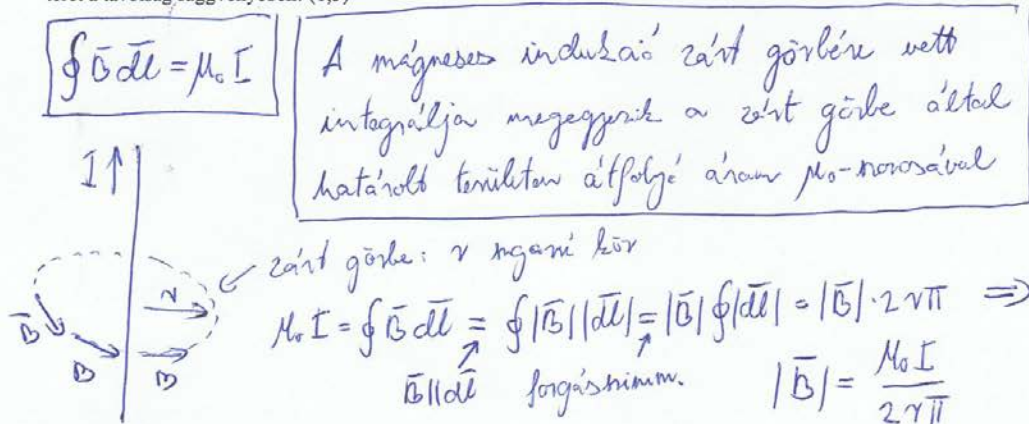 ∮ B̄ d̄l = μ₀ I
A mágneses indukció zárt görbére vett
integrálja megegyezik a zárt görbe által
határolt területen átfolyó áram μ₀-szorosával
I ↑
zárt görbe: r sugarú kör
r
μ₀ I = ∮ B̄ d̄l = ∮ |B̄| |d̄l| = |B̄| ∮ |d̄l| = |B̄| · 2rπ ⇒
B̄
B
B
B̄ || d̄l forgásszimm.
|B̄| = μ₀ I / 2rπ